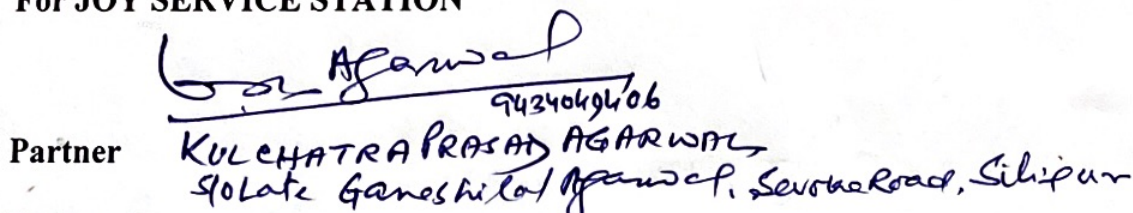 For JOY SERVICE STATION
Agarwal
9434049406
Partner KULCHATRA PRASAD AGARWAL
S/O Late Ganeshilal Agarwal, Sevoke Road, Siliguri